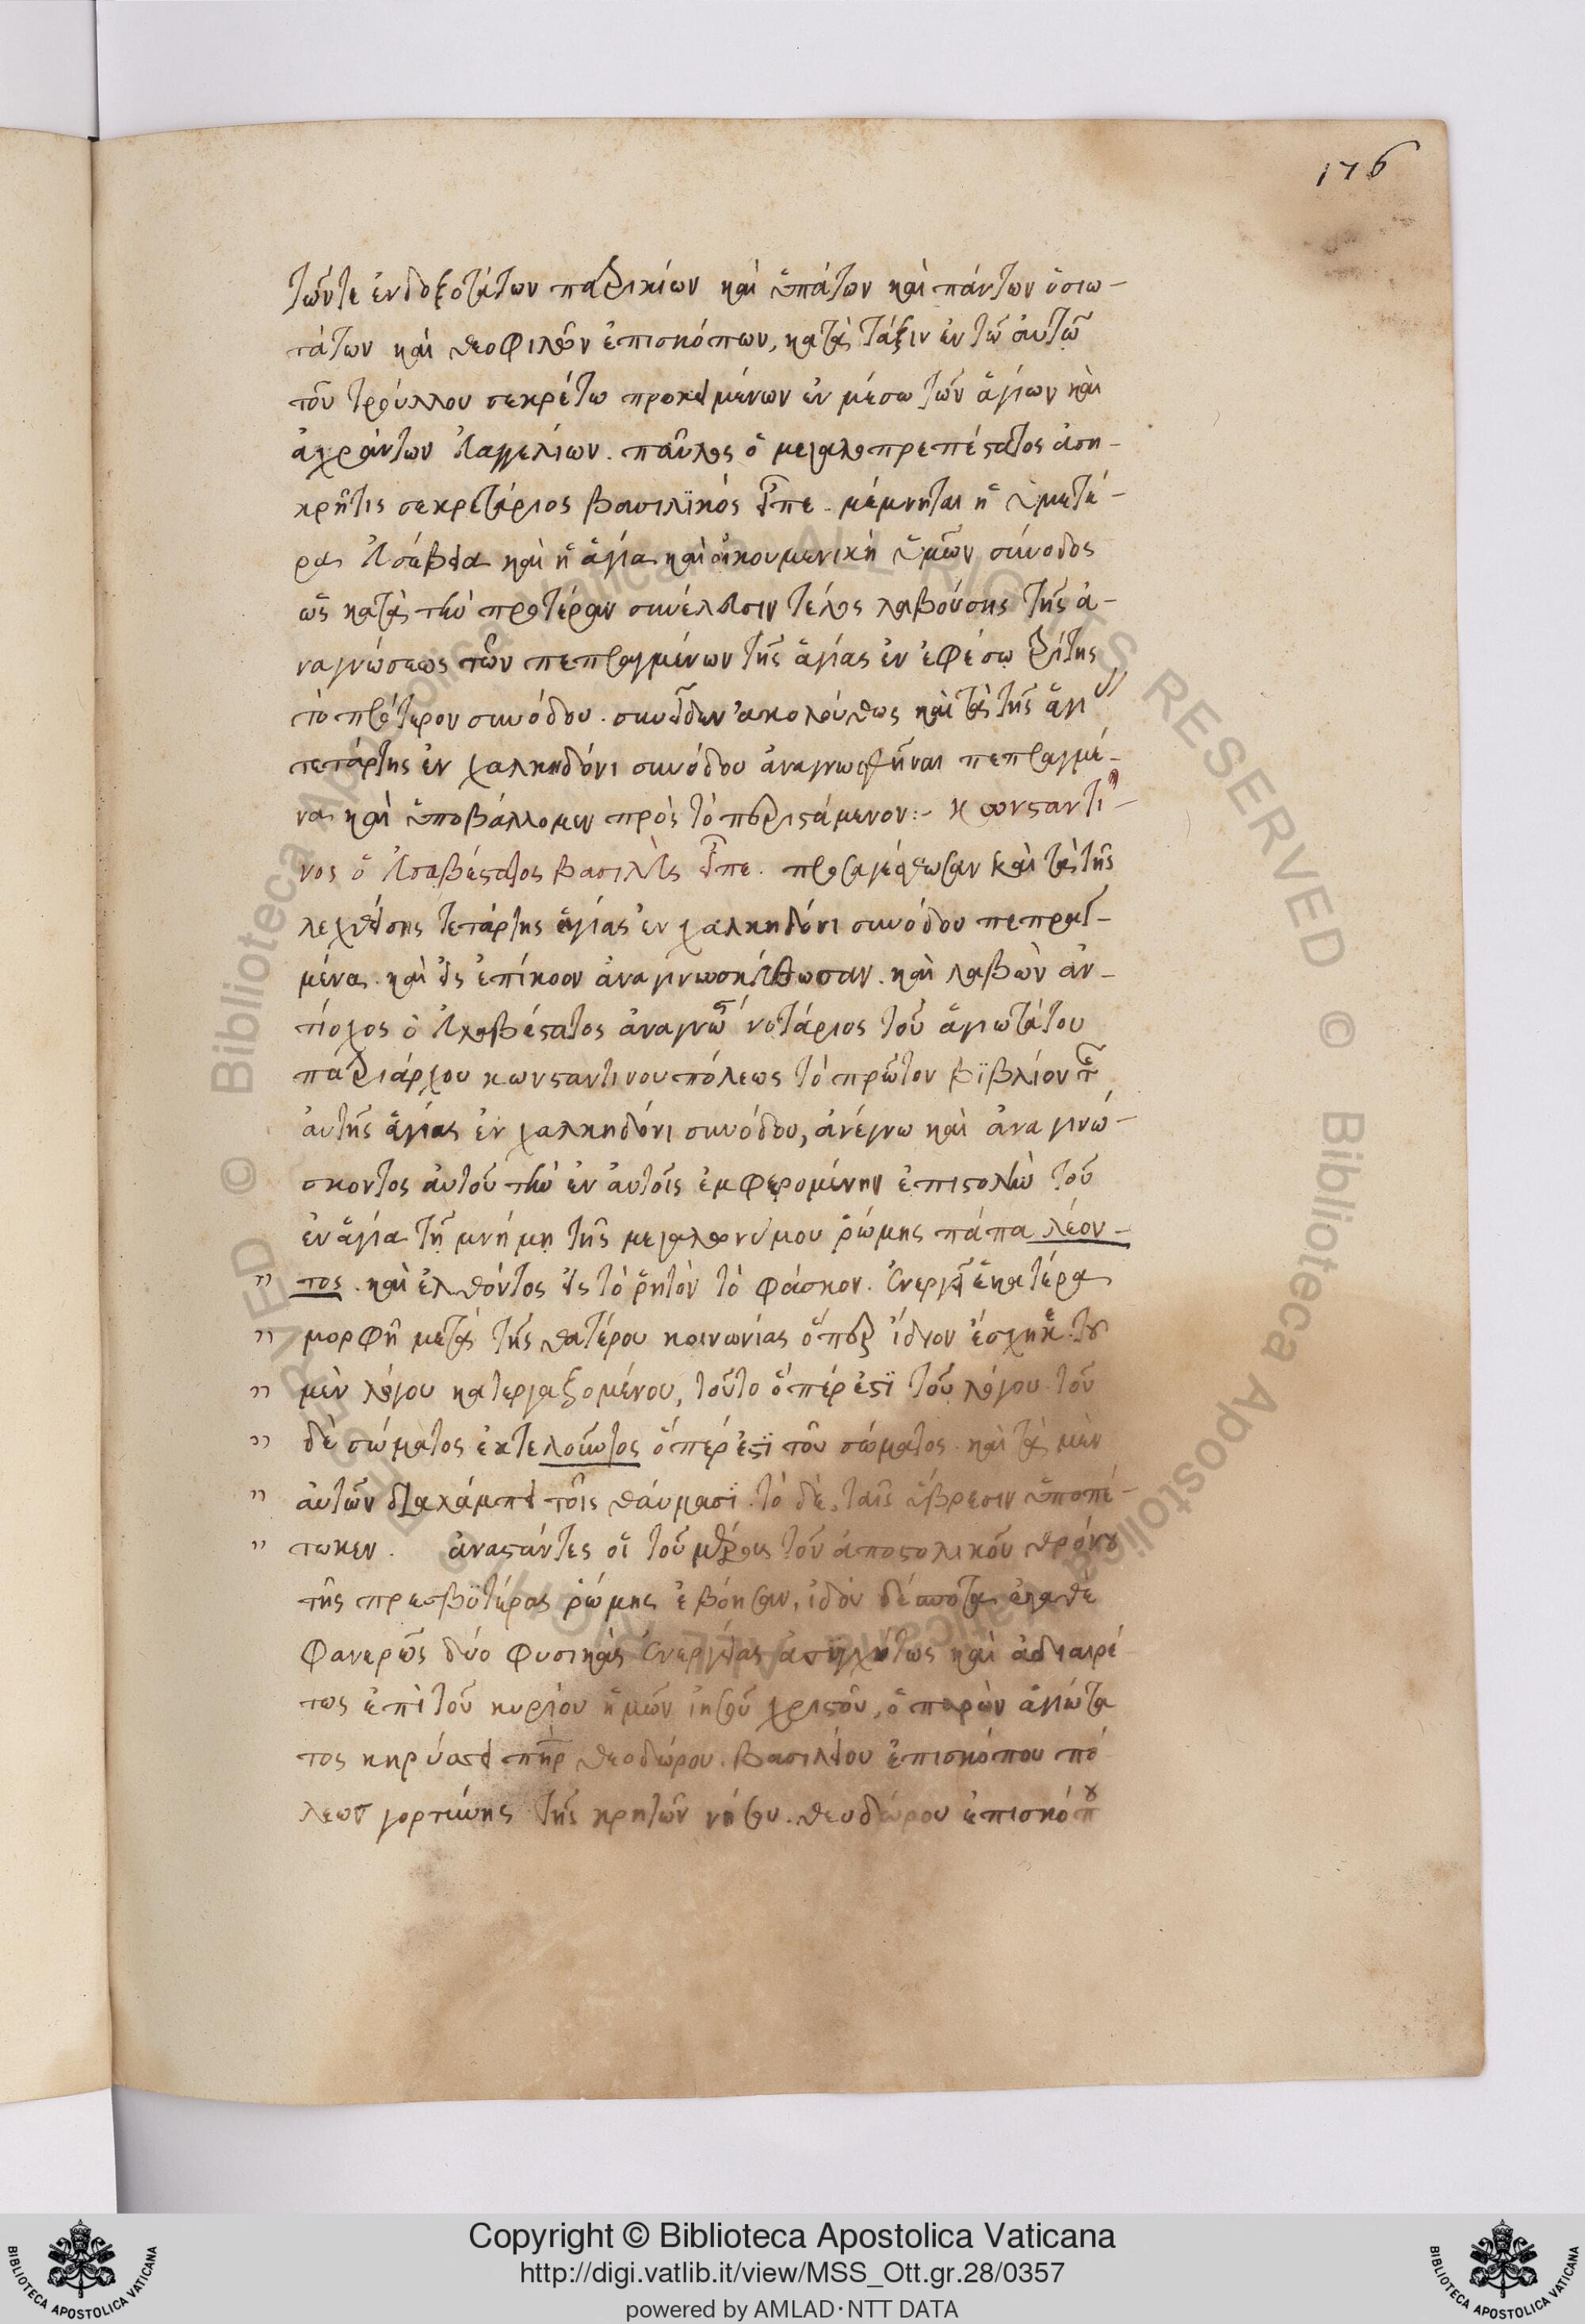 176
τῶντε ἐνδοξοτάτων πατρικίων καὶ ὑπάτων καὶ πάντων ὁσιω-
τάτων καὶ θεοφιλῶν ἐπισκόπων, κατὰ τάξιν ἐν τῶ αὐτῶ
τοῦ τρούλλου σεκρέτω προκειμένων ἐν μέσω τῶν ἁγίων καὶ
ἀχράντων εὐαγγελίων. παῦλος ὁ μεγαλοπρεπέστατος ἀση-
κρῆτις σεκρετάριος βασιλϊκός εἶπε. μέμνηται ἡ ὑμετέ-
ρα εὐσέβεια καὶ ἡ ἁγία καὶ οἰκουμενικὴ ὑμῶν σύνοδος
ὡς κατὰ τὴν προτέραν συνέλευσιν τέλος λαβούσης τῆς ἀ-
ναγνώσεως τῶν πεπραγμένων τῆς ἁγίας ἐν ἐφέσω τρίτης
τὸ πρότερον συνόδου. συνεῖδεν ἀκολούθως καὶ τὰ τῆς ἁγι
τετάρτης ἐν χαλκηδόνι συνόδου ἀναγνωσθῆναι πεπραγμέ-
να καὶ ὑποβάλλομεν πρὸς τὸ παριστάμενον:- κωνσταντῖ-
νος ὁ εὐσεβέστατος βασιλεὺς εἶπε. προσαγέσθωσαν καὶ τὰ τῆς
λεχθείσης τετάρτης ἁγίας ἐν χαλκηδόνι συνόδου πεπραγ-
μένα. καὶ εἰς ἐπίκοον ἀναγινωσκέσθωσαν. καὶ λαβὼν ἀν-
τίοχος ὁ εὐλαβέστατος ἀναγνώστ νοτάριος τοῦ ἁγιωτάτου
πατριάρχου κωνσταντινουπόλεως τὸ πρῶτον βϊβλίον τ
αὐτῆς ἁγίας ἐν χαλκηδόνι συνόδου, ἀνέγνω καὶ ἀναγινώ-
σκοντος αὐτοῦ τὴν ἐν αὐτοῖς ἐμφερομένην ἐπιστολὴν τοῦ
ἐν ἁγία τῆ μνήμη τῆς μεγαλωνύμου ῥώμης πάπα λέον-
τος. καὶ ἐλθόντος εἰς τὸ ῥητὸν τὸ φάσκον. ἐνεργεῖ ἑκατέρα
μορφὴ μετὰ τῆς θατέρου κοινωνίας ὅπερ ἴδιον ἔσχηκε. τοῦ
μὲν λόγου κατεργαζομένου, τοῦτο ὅπέρ ἐστϊ τοῦ λόγου. τοῦ
δὲ σώματος ἐκτελοῦντος ὅπερ ἐστϊ τοῦ σώματος. καὶ τὸ μὲν
αὐτῶν διαλάμπει τοῖς θαύμασϊ. τὸ δὲ, ταῖς ὕβρεσιν ὑποπέ-
τωκεν. ἀναστάντες οἱ τοῦ μέρους τοῦ ἀποστολικοῦ θρόνου
τῆς πρεσβϋτέρας ῥώμης ἐβόησαν, ἰδοὺ δέσποτα ἀγαθὲ
φανερῶς δύο φυσικὰς ἐνεργείας ἀσυγχύτως καὶ ἀδιαιρέ-
τως ἐπὶ τοῦ κυρίου ἡμῶν ἰησοῦ χριστοῦ, ὁ παρὼν ἁγιώτα
τος κηρύσσει πὴρ θεοδώρου. βασιλείου ἐπισκόπου πό
λεως γορτύνης τῆς κρητῶν νήσου. θεοδώρου ἐπισκόπου
Copyright © Biblioteca Apostolica Vaticana
http://digi.vatlib.it/view/MSS_Ott.gr.28/0357
powered by AMLAD·NTT DATA